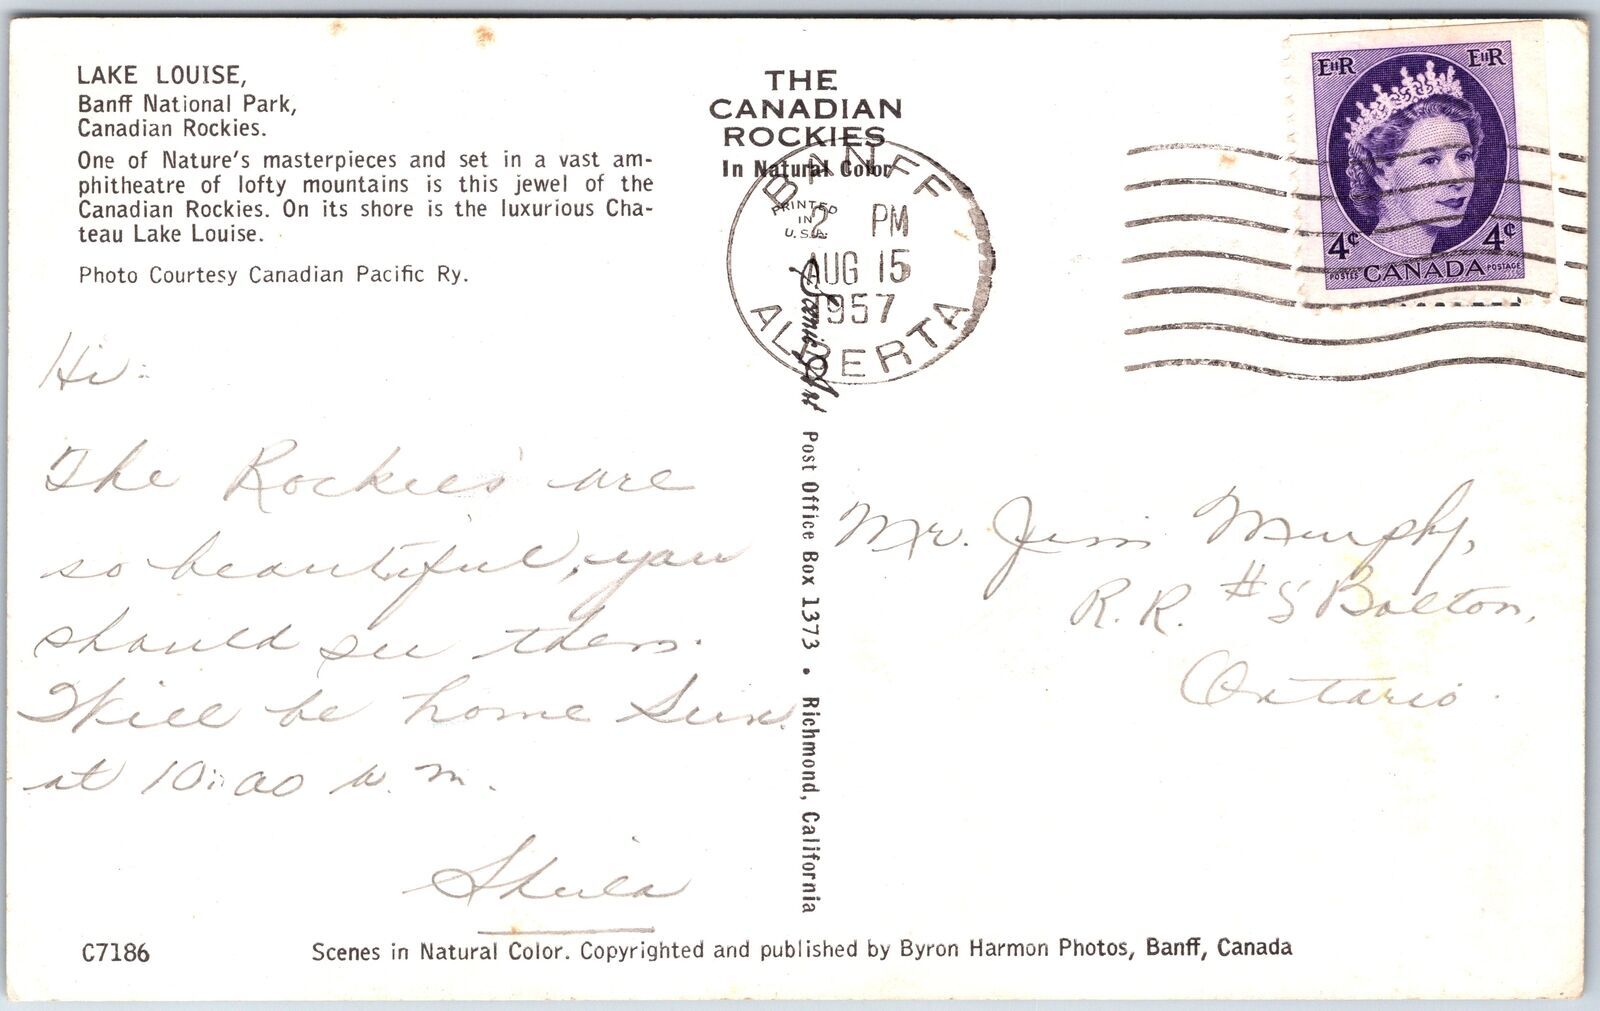 LAKE LOUISE,
Banff National Park,
Canadian Rockies.
One of Nature's masterpieces and set in a vast am-
phitheatre of lofty mountains is this jewel of the
Canadian Rockies. On its shore is the luxurious Cha-
teau Lake Louise.
Photo Courtesy Canadian Pacific Ry.
Hi:
The Rockies are
so beautiful, you
should see them.
I will be home Sun.
at 10:00 a.m.
Sheila
C7186
THE
CANADIAN
ROCKIES
In Natural Color
PRINTED
IN
U.S.A.
BANFF
2 PM
AUG 15
1957
ALBERTA
Scenic Art Post Office Box 1373 • Richmond, California
EIIR EIIR
4¢ 4¢
POSTES CANADA POSTAGE
Mr. Jim Murphy,
R.R. #5 Bolton,
Ontario.
Scenes in Natural Color. Copyrighted and published by Byron Harmon Photos, Banff, Canada